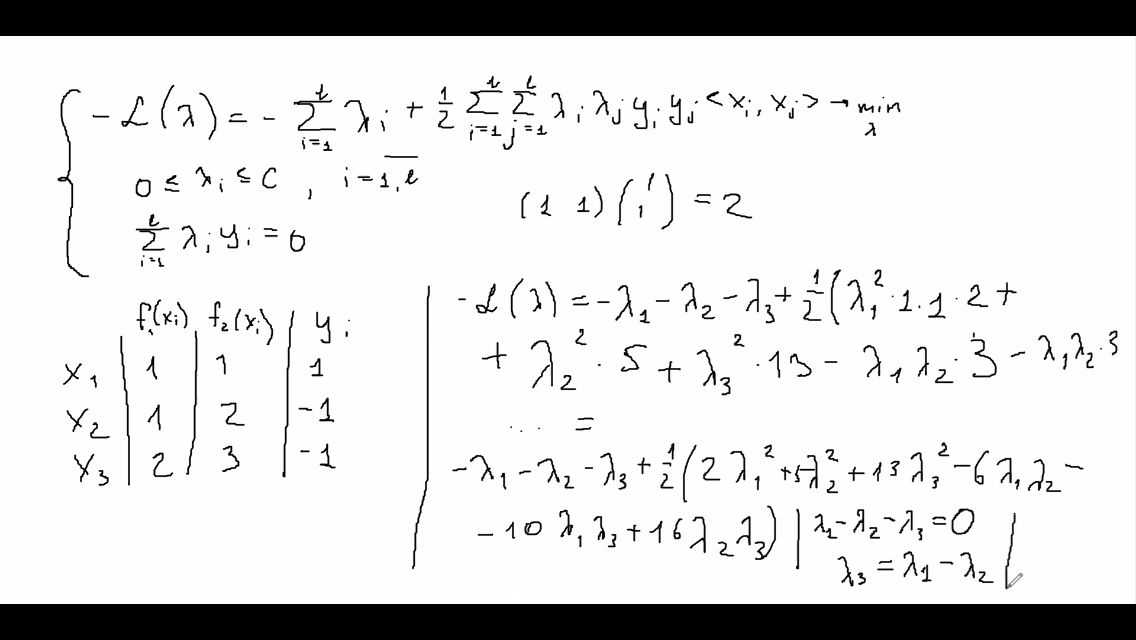 -ℒ(λ) = - Σ_{i=1}^{ℓ} λ_i + 1/2 Σ_{i=1}^{ℓ} Σ_{j=1}^{ℓ} λ_i λ_j y_i y_j <x_i, x_j> → min_λ
0 ≤ λ_i ≤ C , i = \overline{1,ℓ}
Σ_{i=1}^{ℓ} λ_i y_i = 0
(1 1)(1 1) = 2
f_1(x_i) | f_2(x_i) | y_i
x_1 | 1 | 1 | 1
x_2 | 1 | 2 | -1
x_3 | 2 | 3 | -1
-ℒ(λ) = -λ_1 - λ_2 - λ_3 + 1/2 (λ_1^2 · 1 · 1 · 2 +
+ λ_2^2 · 5 + λ_3^2 · 13 - λ_1 λ_2 · 3 - λ_1 λ_2 · 3
... =
-λ_1 - λ_2 - λ_3 + 1/2 (2 λ_1^2 + 5λ_2^2 + 13 λ_3^2 - 6 λ_1 λ_2 -
- 10 λ_1 λ_3 + 16 λ_2 λ_3) | λ_1 - λ_2 - λ_3 = 0
λ_3 = λ_1 - λ_2 |